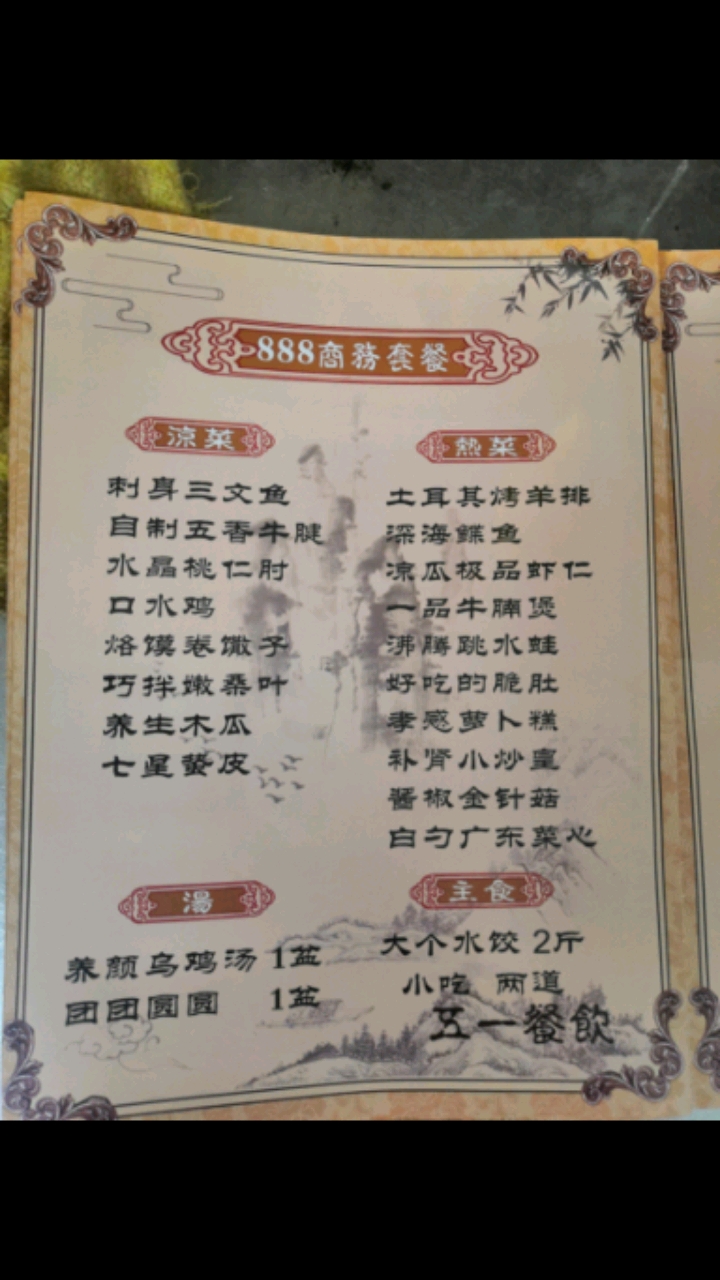 888商務套餐
涼菜
刺身三文鱼
自制五香牛腱
水晶桃仁肘
口水鸡
烙馍卷馓子
巧拌嫩桑叶
养生木瓜
七星蜇皮
熱菜
土耳其烤羊排
深海鲽鱼
凉瓜极品虾仁
一品牛腩煲
沸腾跳水蛙
好吃的脆肚
孝感萝卜糕
补肾小炒皇
酱椒金针菇
白勺广东菜心
湯
养颜乌鸡汤 1盆
团团圆圆 1盆
主食
大个水饺 2斤
小吃 两道
五一餐飲